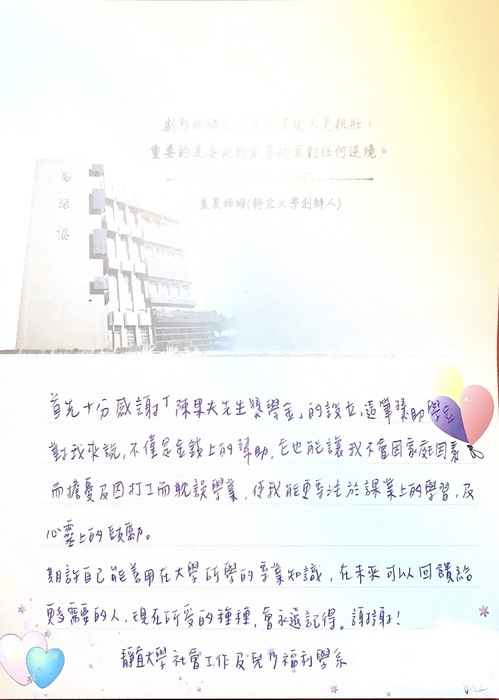 重要的是要能夠面對任何逆境。
蓋夏姆姆(靜宜大學創辦人)
首先十分感謝「陳果夫先生獎學金」的設立,這筆獎助學金
對我來說,不僅是金錢上的幫助,它也能讓我不會因家庭因素
而擔憂及因打工而耽誤學業,使我能更專注於課業上的學習,及
心靈上的鼓勵。
期許自己能善用在大學所學的專業知識,在未來可以回饋給
更多需要的人,現在所受的種種,會永遠記得。謝謝!
靜宜大學社會工作及兒少福利學系